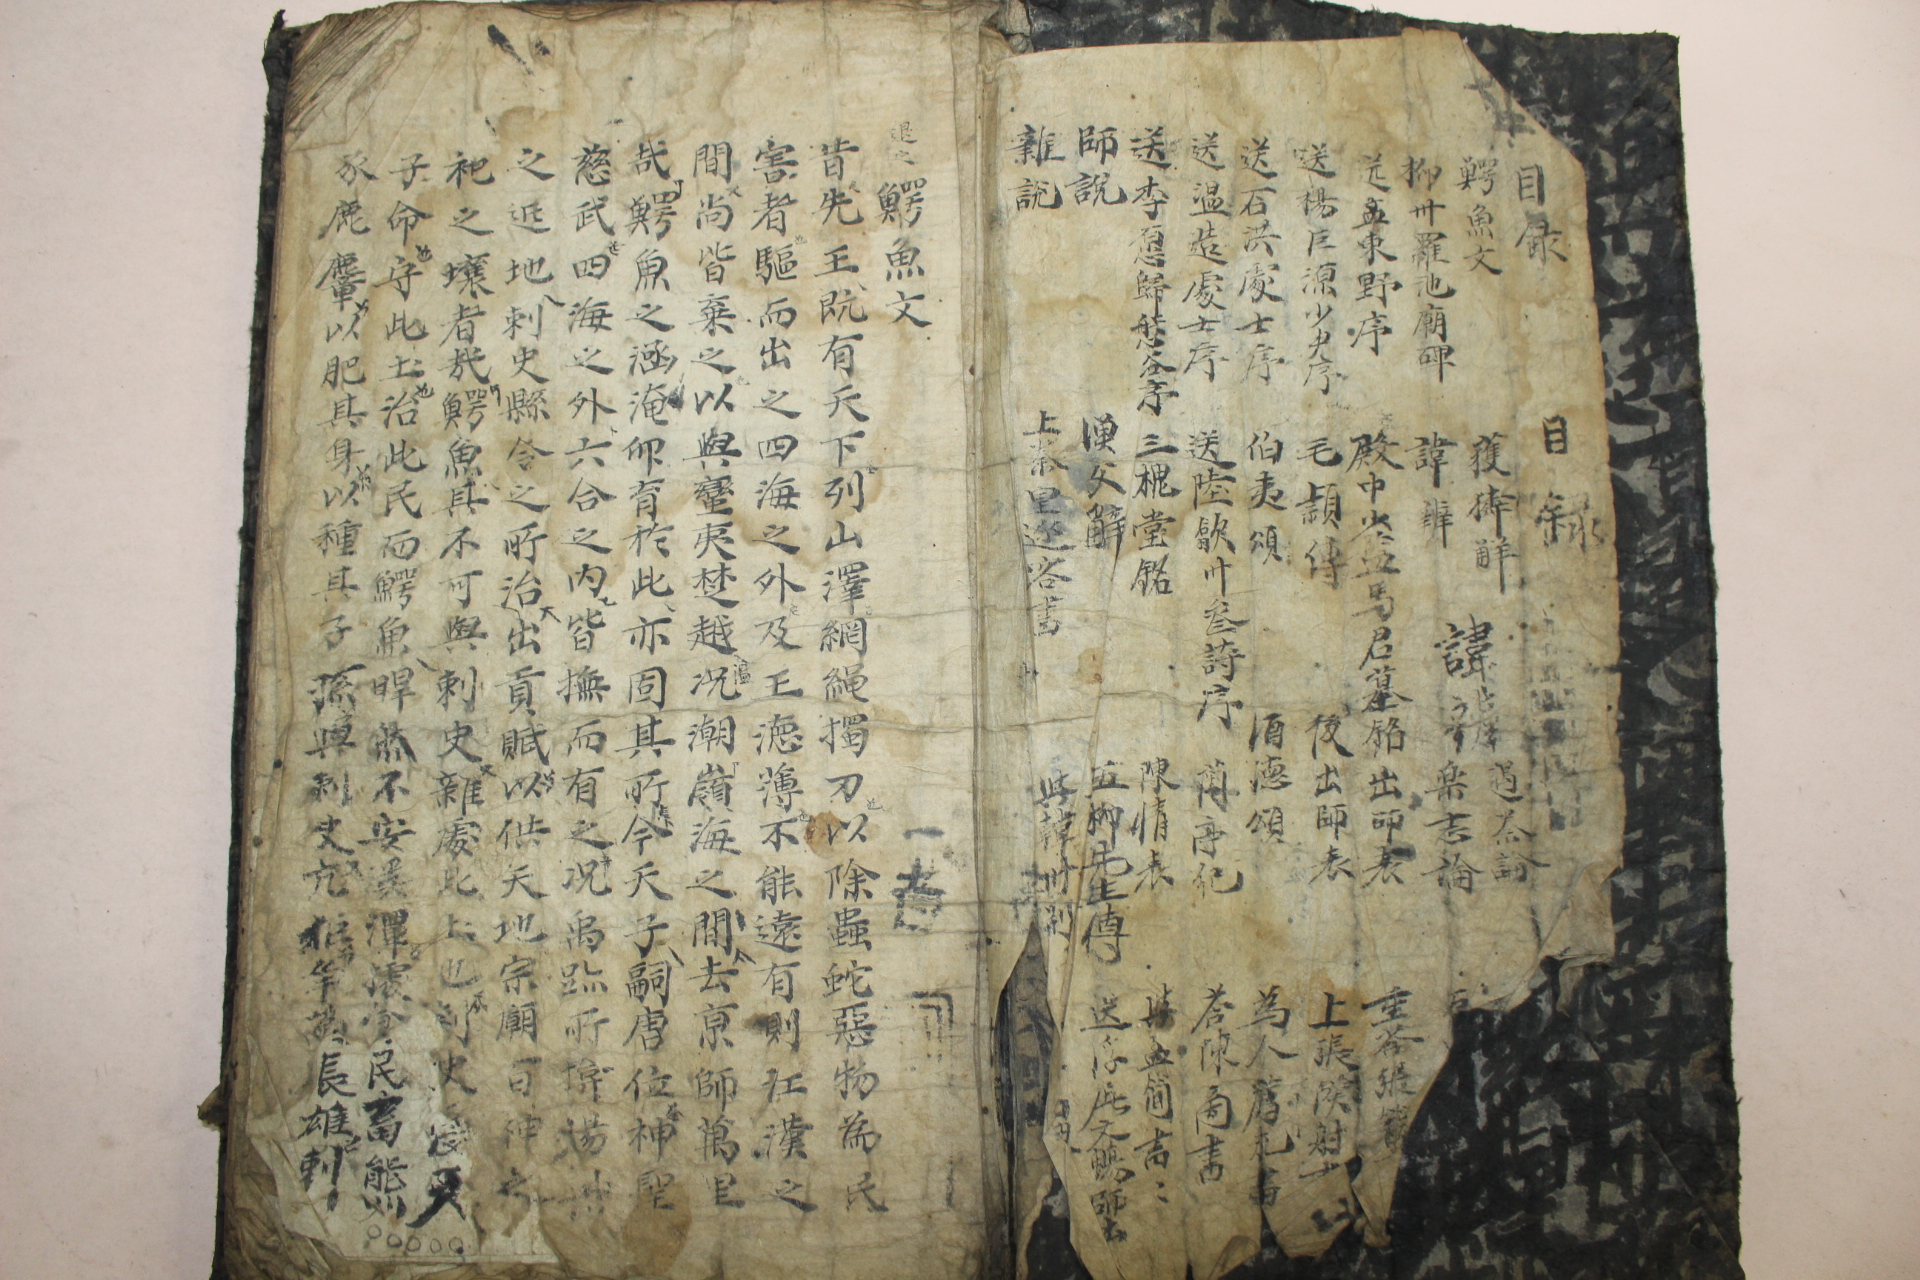 目录
鰐魚文
柳卅羅池廟碑
送孟東野序
送楊巨源少尹序
送石洪處士序
送温造處士序
送李愿歸盤谷序
師說
雜說
目錄
獲獜解
諱辨
殿中少监馬君墓銘
毛穎傳
伯夷頌
送陸歙卅叅詩序
三槐堂銘
漢父辭
上秦皇逐客書
諱
樂志論
出師表
後出師表
酒德頌
蘭亭記
陳情表
五柳先生傳
與韓
重答張
上張僕射
為人
答陳商書
與孟簡
送浮屠文暢師
退之
鰐魚文
昔先王旣有天下列山澤網繩擉刀以除蟲蛇惡物為民
害者驅而出之四海之外及王德薄不能遠有則江漢之
間尚皆棄之以與蠻夷楚越况潮嶺海之間去京師萬里
哉鰐魚之涵淹卵育於此亦固其所今天子嗣唐位神聖
慈武四海之外六合之內皆撫而有之况禹跡所揜揚州
之近地刺史縣令之所治出貢賦以供天地宗廟百神之
祀之壤者哉鰐魚其不可與刺史雜處此土也刺史受天
子命守此土治此民而鰐魚睅然不安溪潭㩀食民畜熊
豕鹿麞以肥其身以種其子孫與刺史亢拒爭為長雄刺